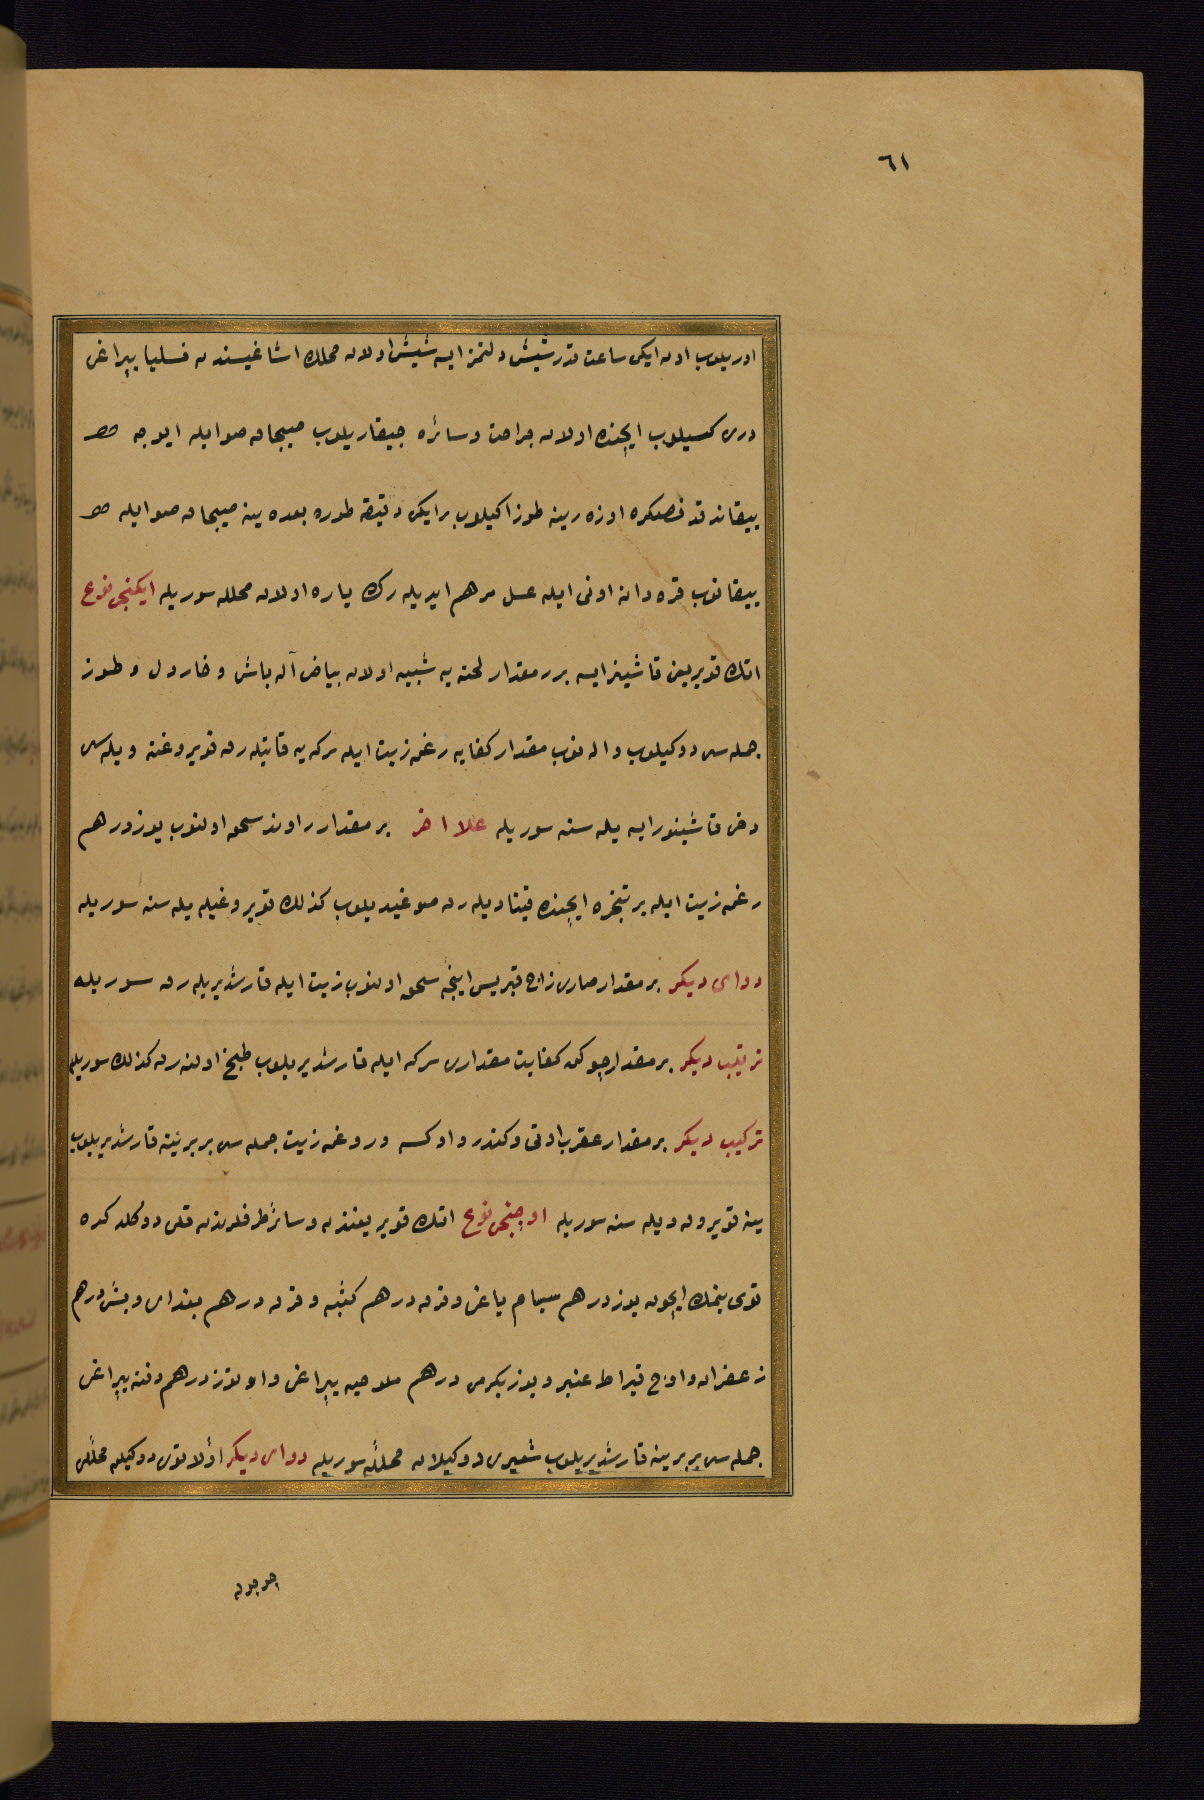 ٦١
اوریلوب اون ایکی ساعت قدر شیش دلنمز ایسه شیش اولان محلك اشاغیسندن فسلیا یپراغی
دری کسیلوب ایچنده اولان جراحت وسائره چیقاریلوب صیجاق صو ایله ایوجه
ییقاندقدنصکره اوزه رینه طوز اکیلوب بر ایکی دقیقه طوره بعده ینه صیجاق صو ایله
ییقانوب قره دانه اونی ایله عسل مرهم ایدیله رك یاره اولان محلله سوریله ایکنجی نوع
اتك قویریغی قاشینر ایسه برر مقدار لحنه یه شبیه اولان بیاض آله باش و خاردل و طوز
جمله سی دوکیلوب واله نوب مقدار کفایه رغن زیت ایله سرکه یه قاتیله رق قویروغنه ویله سی
دخی قاشینور ایسه یله سنه سوریله علا اخر بر مقدار راوند سحق اولنوب یوز درهم
رغن زیت ایله بر تنجره ایچنده قینادیله رق صوغیدیلوب کذلك قویروغیله یله سنه سوریله
دوای دیکر بر مقدار صاری زاج قبریس اینجه سحق اولنوب زیت ایله قارشدیریله رق سوریله
ترتیب دیکر بر مقدار چوکن کفایت مقداری سرکه ایله قارشدیریلوب طبخ اولنه رق کذلك سوریله
ترکیب دیکر بر مقدار عقرب اوتی وکندر و اوکسه و روغن زیت جمله سی بربرینه قارشدیریلوب
ینه قویروق ویله سنه سوریله اوچنجی نوع اتك قویریغندن وسائر طرفلرندن قلی دوکلدکده
توی بتمك ایچون یوز درهم سیام یاغی وقرق درهم کثبه وقرق درهم بغدای وبش درهم
زعفران واوچ قیراط عنبر ویوز یکرمی درهم ملوحیه یپراغی واوتوز درهم دفنه یپراغی
جمله سی بربرینه قارشدیریلوب شعیری دوکیلان محلنه سوریله دوای دیکر اولا توی دوکیلن محللی
چوجوق